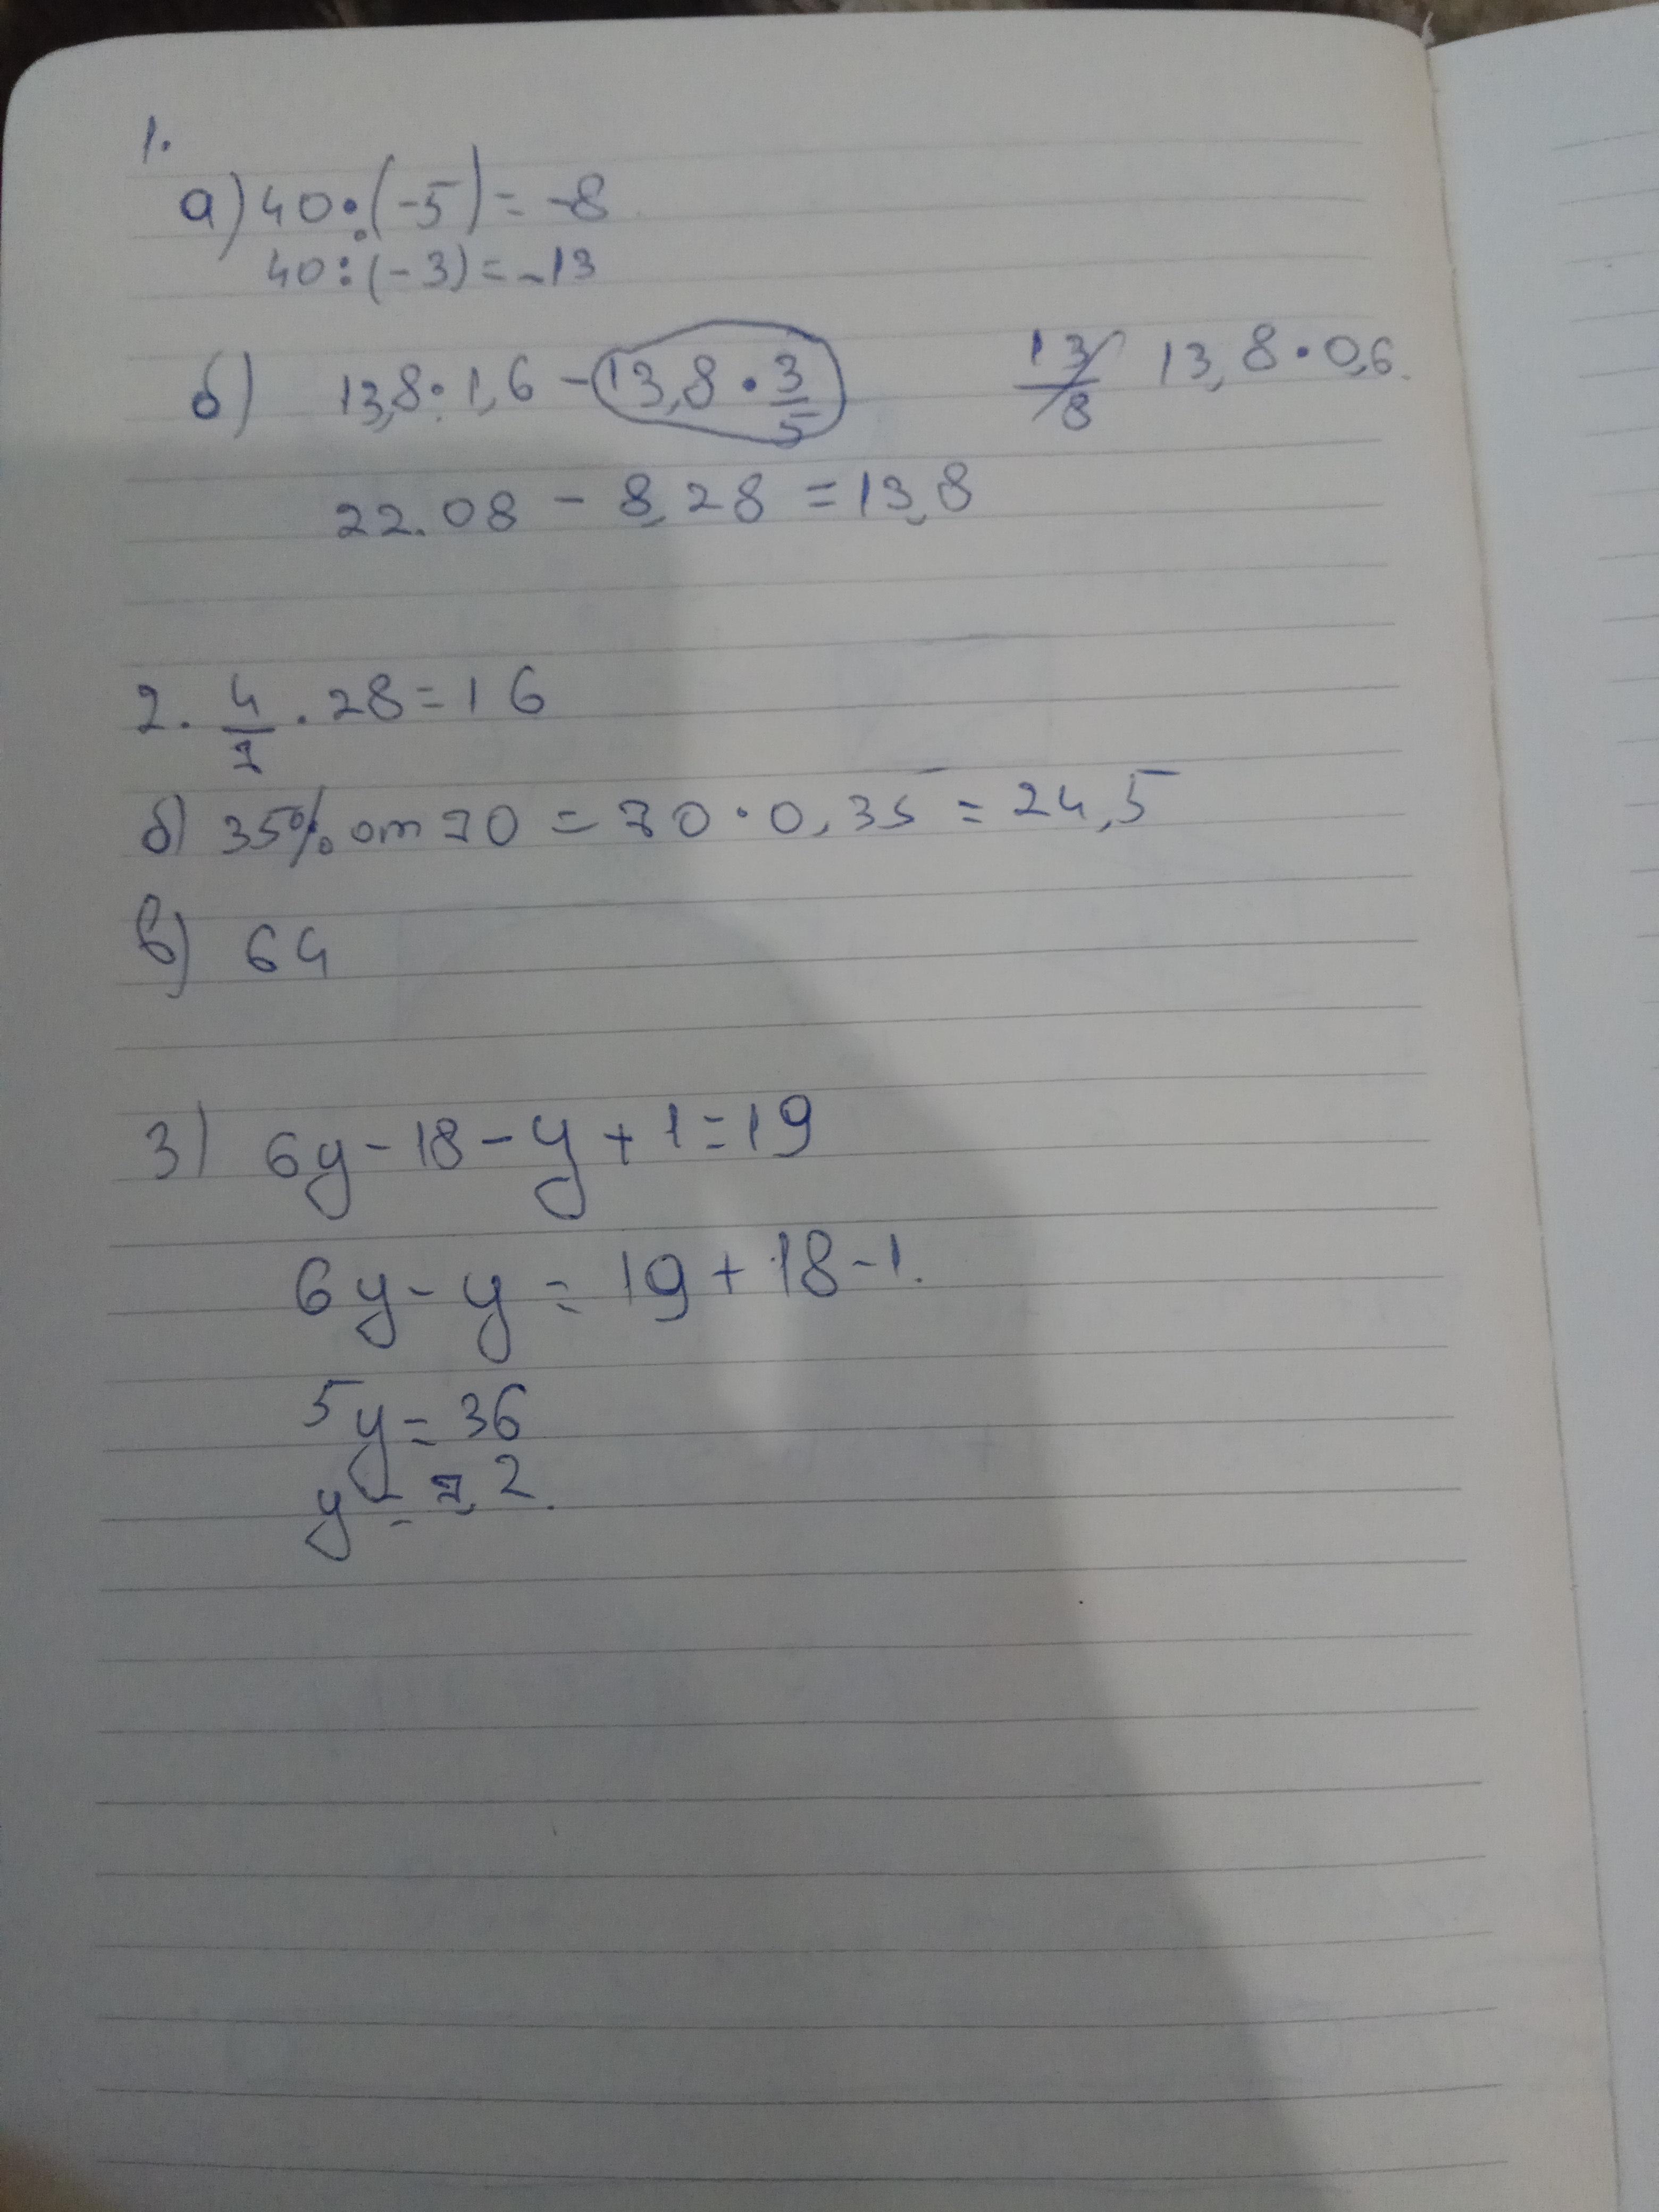 1.
а) 40 : (-5) = -8
40 : (-3) = -13
б) 13,8 · 1,6 - 13,8 · 3/5 13/8 13,8 · 0,6
22.08 - 8,28 = 13,8
2. 4/7 · 28 = 16
б) 35% от 70 = 70 · 0,35 = 24,5
в) 64
3) 6y - 18 - y + 1 = 19
6y - y = 19 + 18 - 1.
5y = 36
y = 7,2.